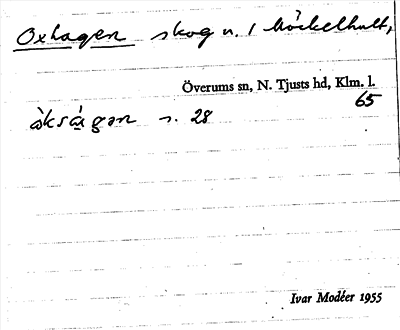 Oxhagen skog u. 1 Möckelhult,
Överums sn, N. Tjusts hd, Klm. l.
65
s. 28
Ivar Modéer 1955